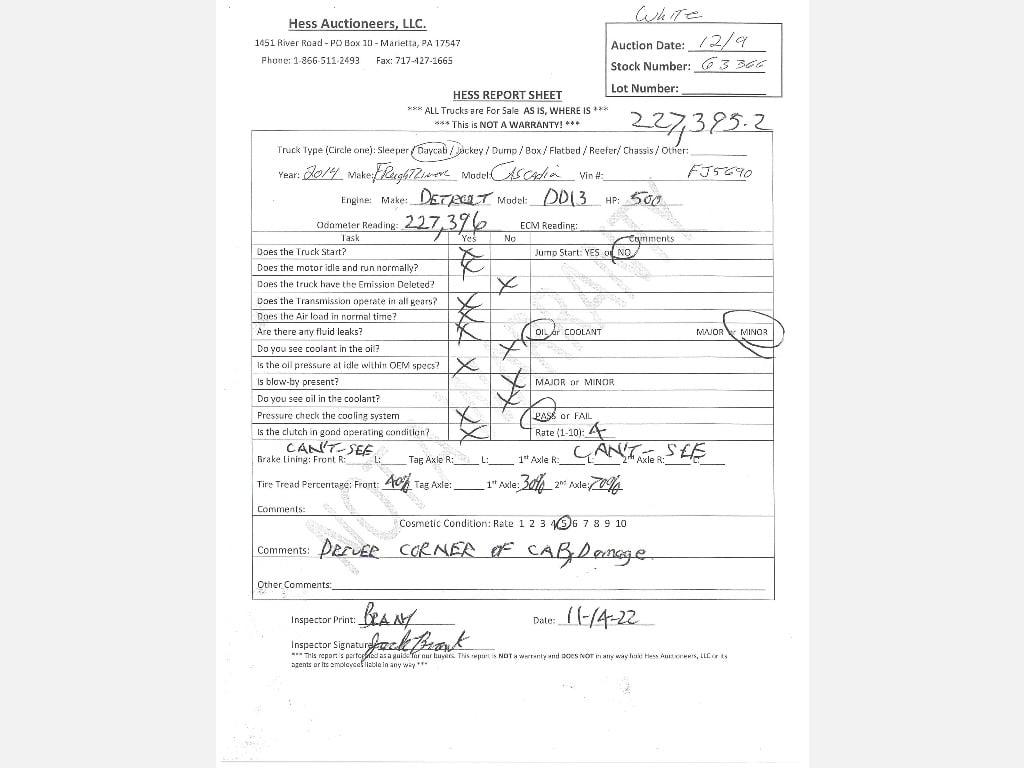 White
Hess Auctioneers, LLC.
1451 River Road - PO Box 10 - Marietta, PA 17547
Phone: 1-866-511-2493 Fax: 717-427-1665
Auction Date: 12/9
Stock Number: 63366
Lot Number:
HESS REPORT SHEET
*** ALL Trucks are For Sale AS IS, WHERE IS ***
*** This is NOT A WARRANTY! ***
227,395.2
Truck Type (Circle one): Sleeper / Daycab / Jockey / Dump / Box / Flatbed / Reefer/ Chassis / Other:
Year: 2014 Make: Model: CASCADIA Vin #: FJ5690
Engine: Make: DETROIT Model: DD13 HP: 500
Odometer Reading: 227,396 ECM Reading:
Task Yes No Comments
Does the Truck Start? X Jump Start: YES or NO
Does the motor idle and run normally? X
Does the truck have the Emission Deleted? X
Does the Transmission operate in all gears? X
Does the Air load in normal time? X
Are there any fluid leaks? X OIL or COOLANT MAJOR or MINOR
Do you see coolant in the oil? X
Is the oil pressure at idle within OEM specs? X
Is blow-by present? X MAJOR or MINOR
Do you see oil in the coolant? X
Pressure check the cooling system X PASS or FAIL
Is the clutch in good operating condition? X Rate (1-10): 4
CAN'T-SEE CAN'T-SEE
Brake Lining: Front R: L: Tag Axle R: L: 1st Axle R: L: 2nd Axle R: L:
Tire Tread Percentage: Front: 40% Tag Axle: 1st Axle: 30% 2nd Axle: 70%
Comments:
Cosmetic Condition: Rate 1 2 3 4 5 6 7 8 9 10
Comments: DRIVER CORNER OF CAB Damage
Other Comments:
Inspector Print: BRANT Date: 11-14-22
Inspector Signature: Jack Brant
*** This report is performed as a guide for our buyers. This report is NOT a warranty and DOES NOT in any way hold Hess Auctioneers, LLC or its
agents or its employees liable in any way ***
NOT A WARRANTY